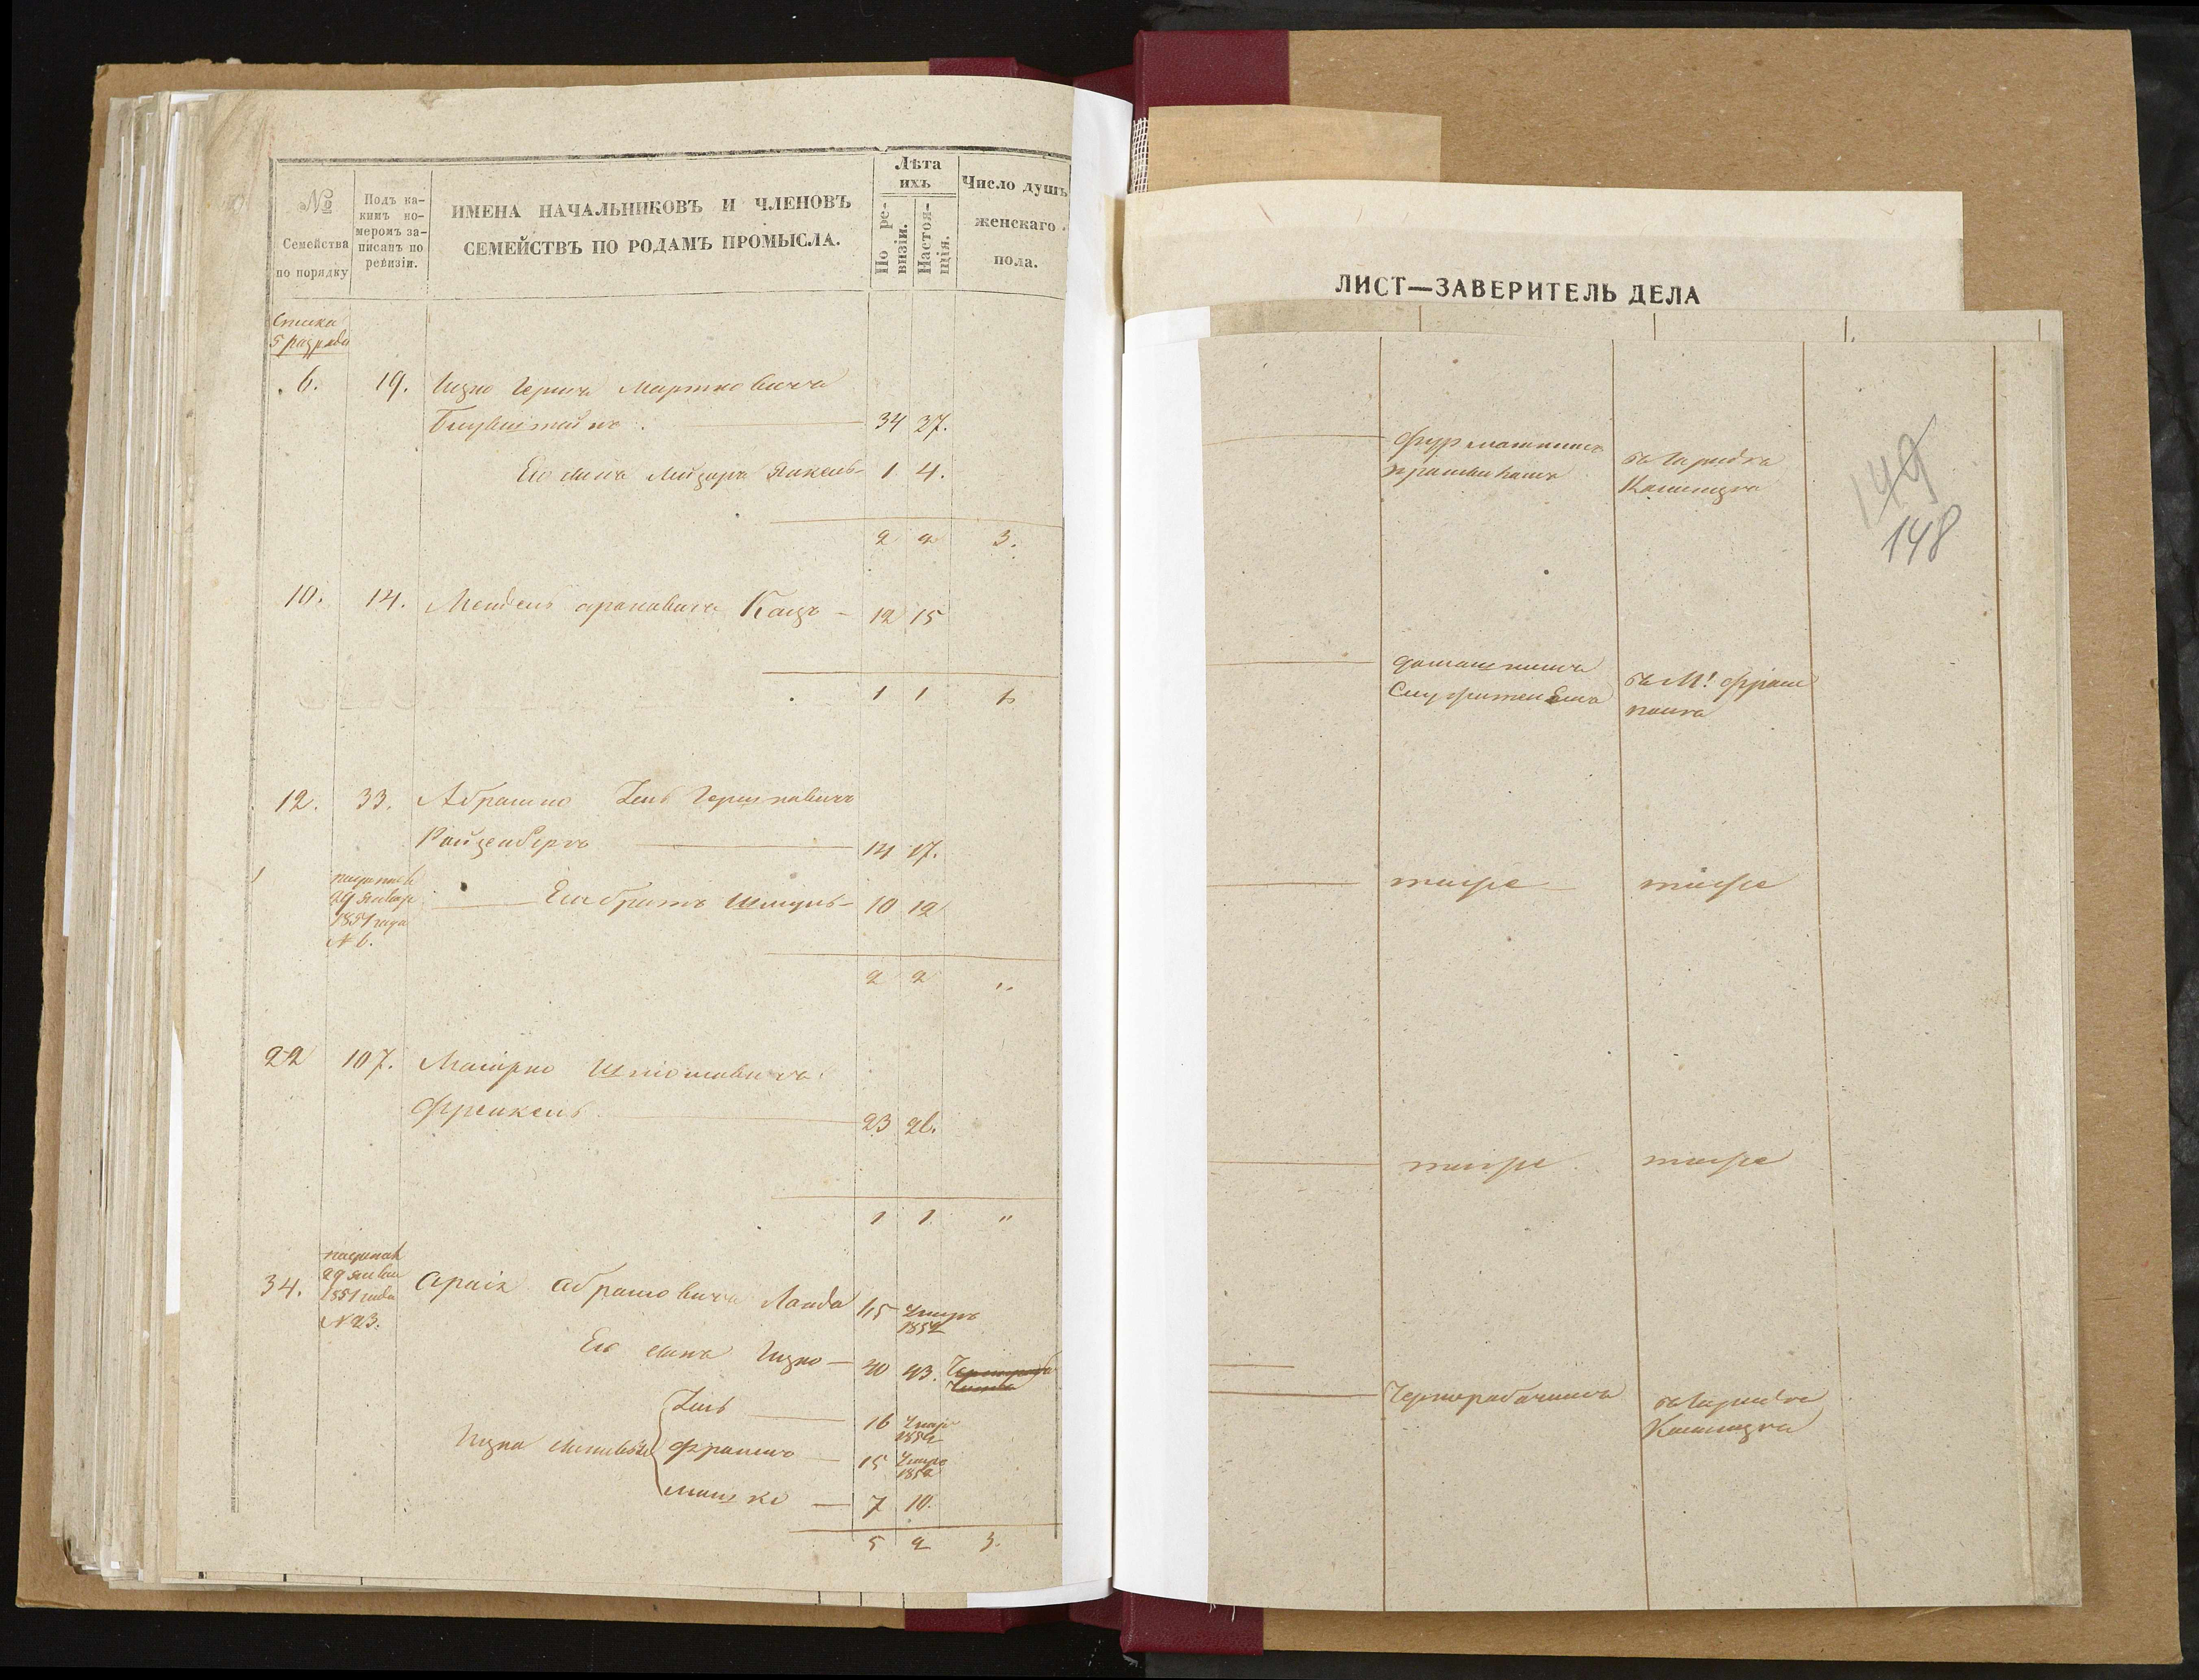 №
Семейства
по порядку
Подъ ка-
кимъ но-
меромъ за-
писанъ по
ревизіи.
ИМЕНА НАЧАЛЬНИКОВЪ И ЧЛЕНОВЪ
СЕМЕЙСТВЪ ПО РОДАМЪ ПРОМЫСЛА.
Лѣта
ихъ
По ре-
визіи.
Настоя-
щія.
Число душъ
женскаго
пола.
Списка
5 разряда
6. 19. Ицко Гершъ Мартковичъ
34 27.
Его сынъ Лейзеръ Янкель 1 4.
2 2 3.
10. 14. Мендель Ароновичъ Кацъ 12 15
1 1 1
12. 33. Абрамко Зель Гершковичъ
Ройзенберъ 14 17.
29 Январ
1851 года
N 6.
Его братъ Шмуль 10 12
2 2 "
22 107. Маіорко
Френкель 23 26.
1 1 "
34.
29 Янва
1851 года
N 23.
Араія Абрамовичъ Ланда 45 Умеръ
1852
Его сынъ Ицко 40 43.
Ицка сыновья
Зель 16 Умер
1852
Фраимъ 15 Умеръ
1852
Мошко 7 10.
5 2 3.
ЛИСТ—ЗАВЕРИТЕЛЬ ДЕЛА
149
148
фурманнымъ
промысломъ
въ Городѣ
домашнимъ
Служителемъ
въ М!
тоже тоже
тоже тоже
Чернорабочимъ
въ Городѣ